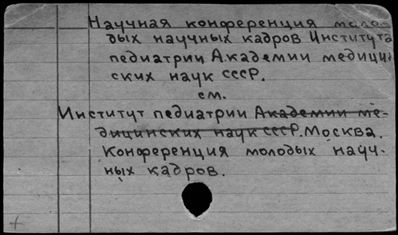 Научная конференция моло-
дых научных кадров Института
педиатрии Академии медицин-
ских наук СССР.
см.
Институт педиатрии Академии ме-
дицинских наук СССР. Москва.
Конференция молодых науч-
ных кадров.
+